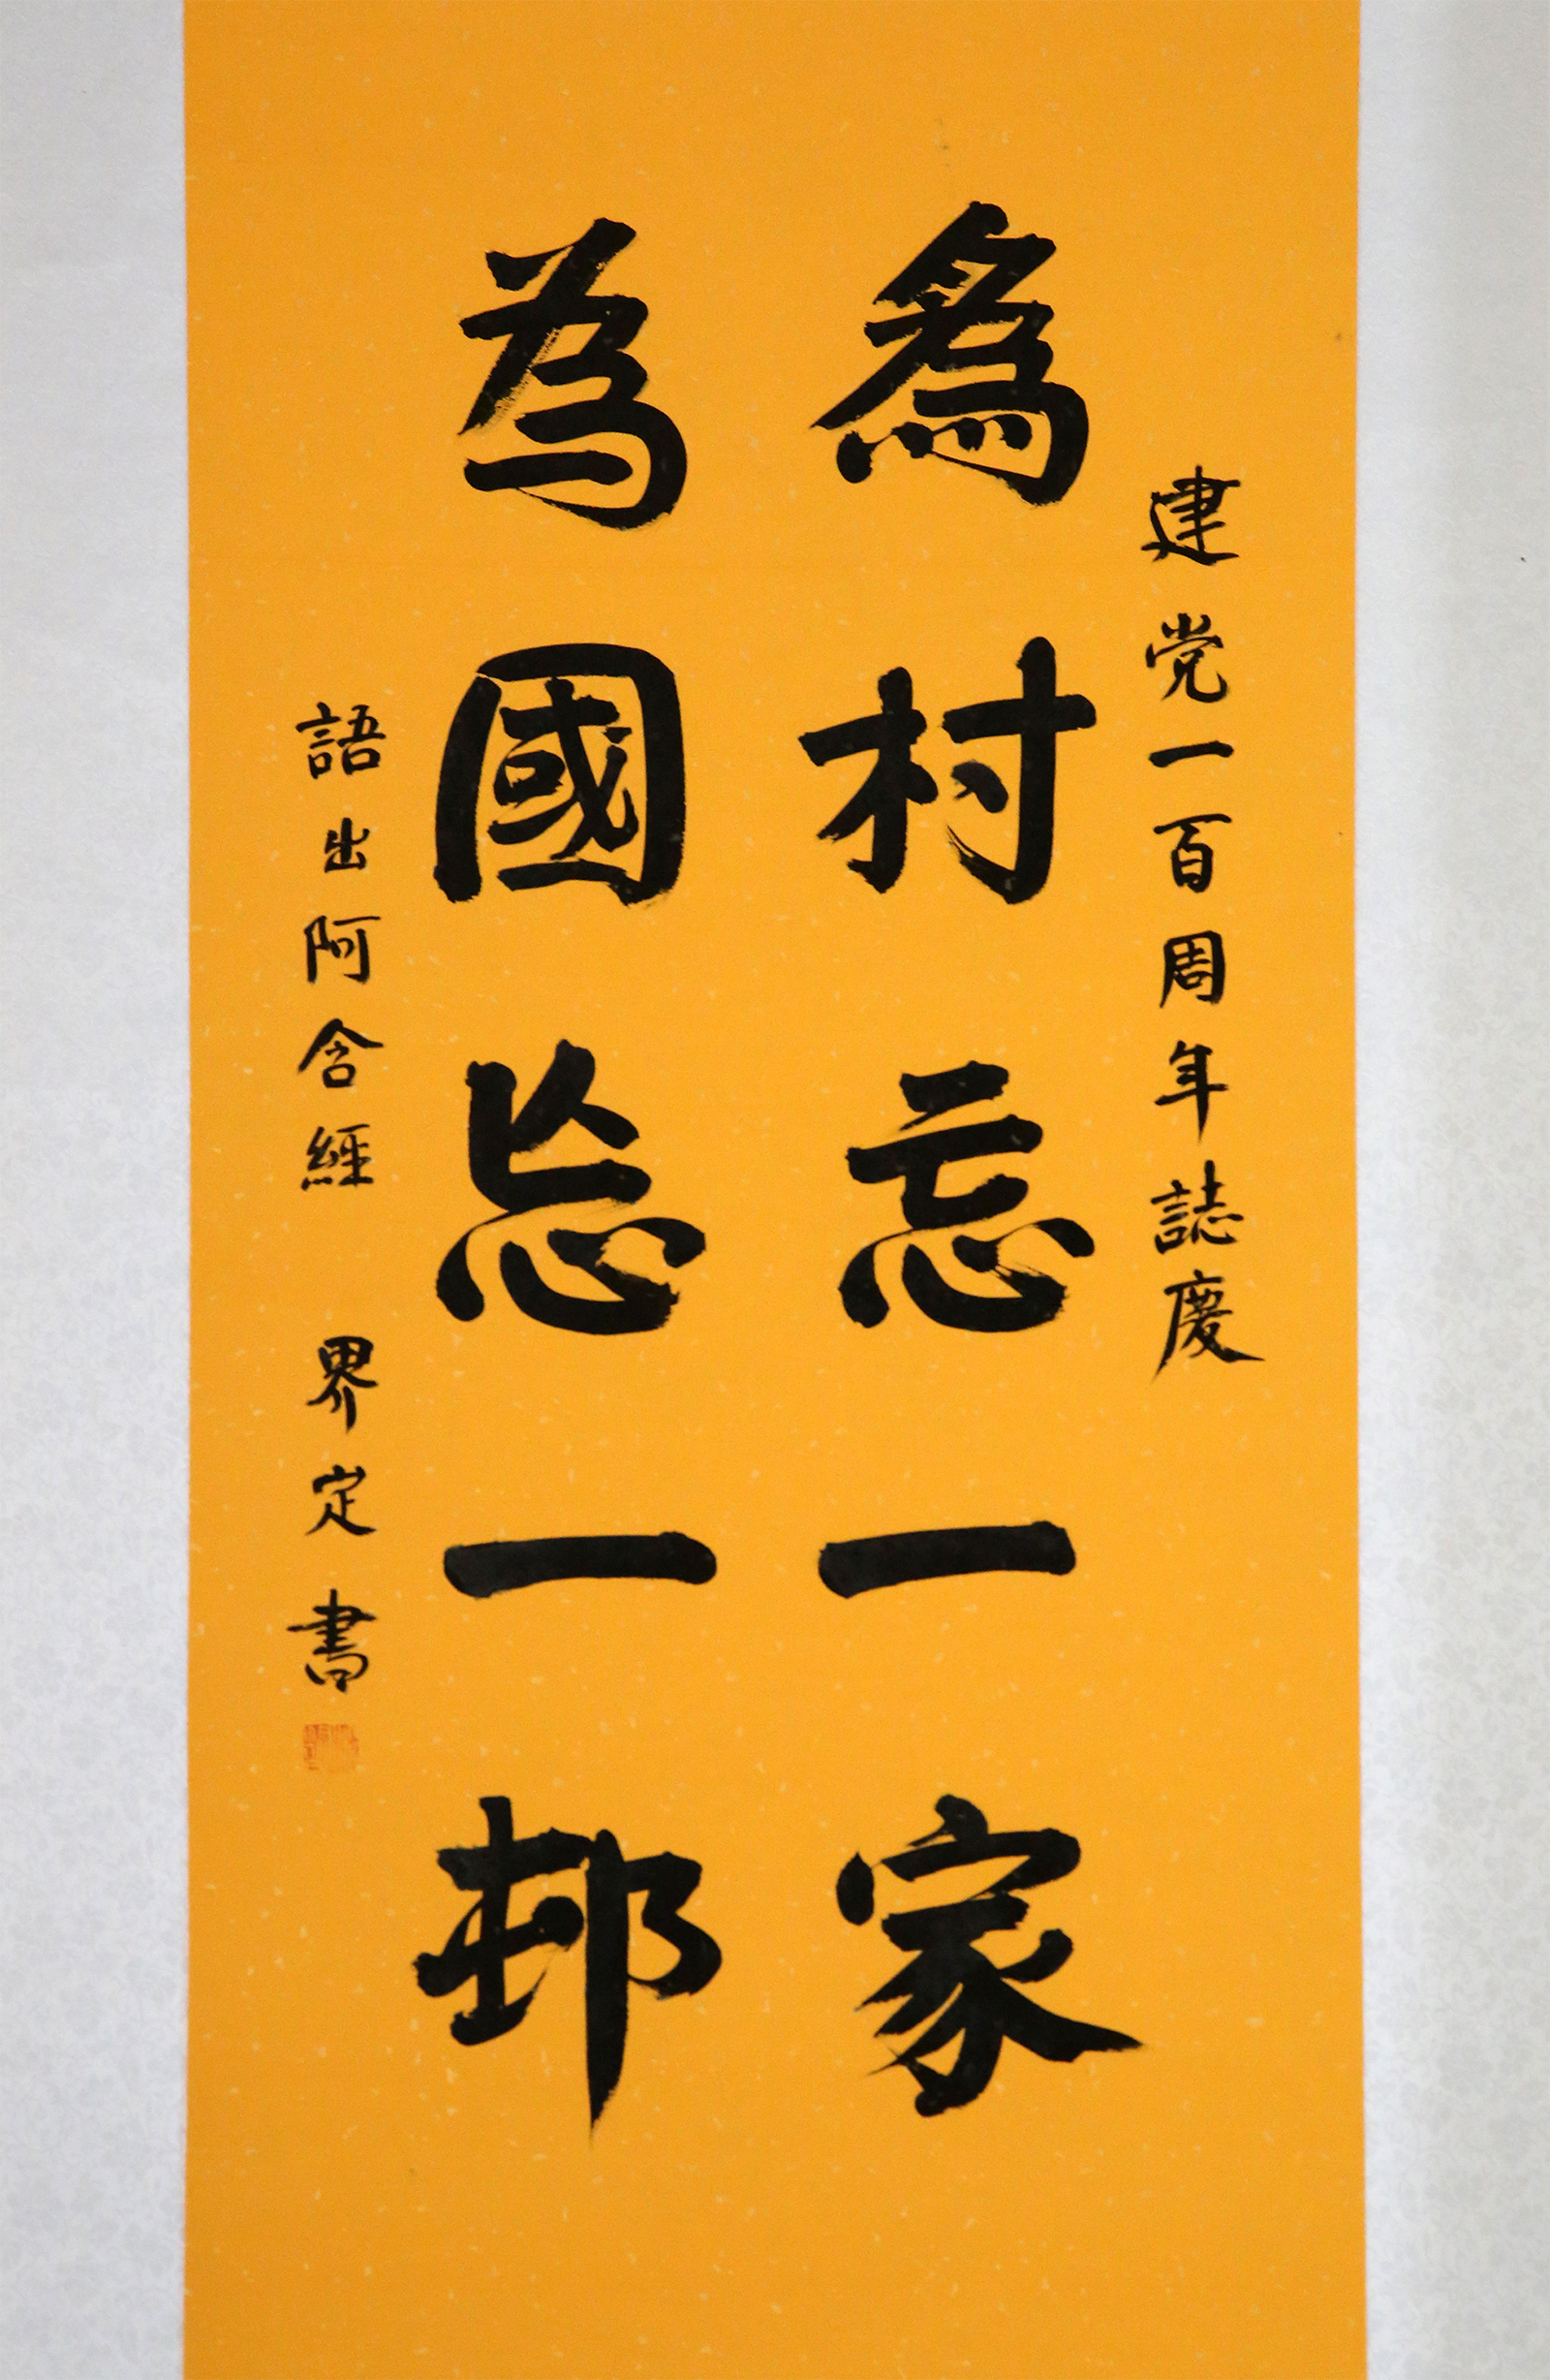 建党一百周年誌慶
爲村忘一家
為國忘一邨
語出阿含經 界定書